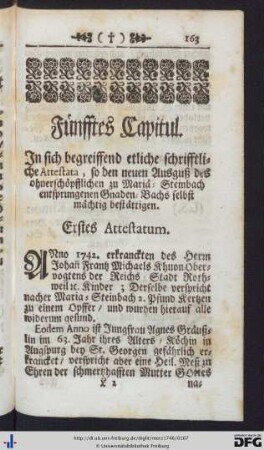 ( † ) 163
Fünfftes Capitul.
In sich begreiffend etliche schrifftli-
che Attestata, so den neuen Ausguß des
ohnerschöpfflichen zu Maria-Steinbach
entsprungenen Gnaden-Bachs selbst
mächtig bestättigen.
Erstes Attestatum.
ANno 1742. erkranckten des Herrn
Johañ Frantz Michaels Khuon Ober-
vogtens der Reichs-Stadt Roth-
weil ꝛc. Kinder; Derselbe verspricht
nacher Maria-Steinbach 2. Pfund Kertzen
zu einem Opffer, und wurden hierauf alle
widerum gesund.
Eodem Anno ist Jungfrau Agnes
im 63. Jahr ihres Alters, Köchin in
Augspurg bey St. Georgen gefährlich er-
krancket, verspricht aber eine Heil. Meß zu
Ehren der schmertzhafften Mutter GOttes
L 2 na-
http://dl.ub.uni-freiburg.de/diglit/mirs1746/0187
© Universitätsbibliothek Freiburg
gefördert durch die
DFG